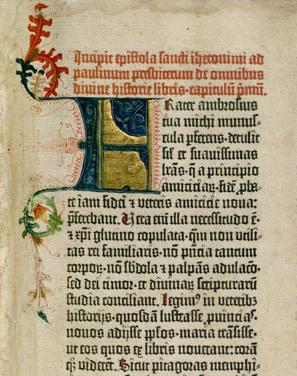 Incipit epistola sancti iheronimi ad
paulinum presbiterum de omnibus
divine historie libris. capitulū pmū.
Frater ambrosius
tua michi munus-
cula pferens. detulit
sil' et suavissimas
lrās. q̄ a principio
amiciciarū. fidē pba-
te iam fidei et veteris amicicie nova:
pferebant. Vera eni illa necessitudo ē.
et xpi glutino copulata. qm̄ non utili-
tas rei familiaris. nō pntia tantum
corporū. nō sbdola et palpās adulacō.
sed dei timor. et divinarū scripturarū
studia conciliant. Legimus in veteribꝫ
historijs. quosdā lustrasse puincias.
novos adijsse pplos. maria trāsisse.
ut eos quos ex libris noverant: corā
qꝫ viderēt. Sicut pitagoras memphi-